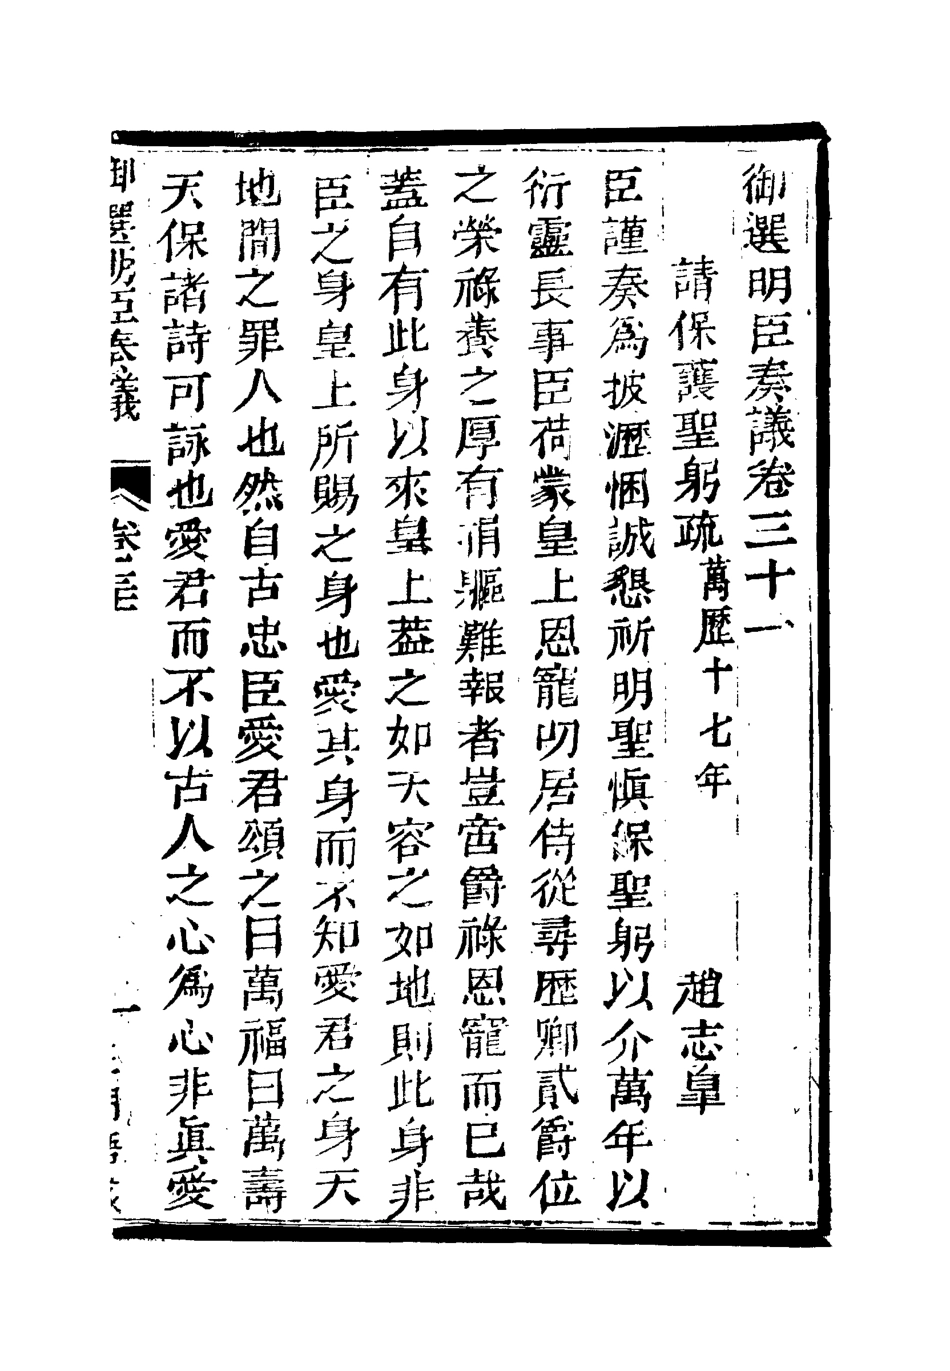 御選明臣奏議卷三十一
請保護聖躬疏萬歷十七年 趙志臯
臣謹奏爲披瀝悃誠懇祈明聖愼保聖躬以介萬年以
衍靈長事臣荷蒙皇上恩寵叨居侍從尋歷卿貳爵位
之榮祿養之厚有捐軀難報者豈啻爵祿恩寵而已哉
蓋自有此身以來皇上葢之如天容之如地則此身非
臣之身皇上所賜之身也愛其身而不知愛君之身天
地間之罪人也然自古忠臣愛君頌之曰萬福曰萬壽
天保諸詩可詠也愛君而不以古人之心爲心非眞愛
御選明臣奏議